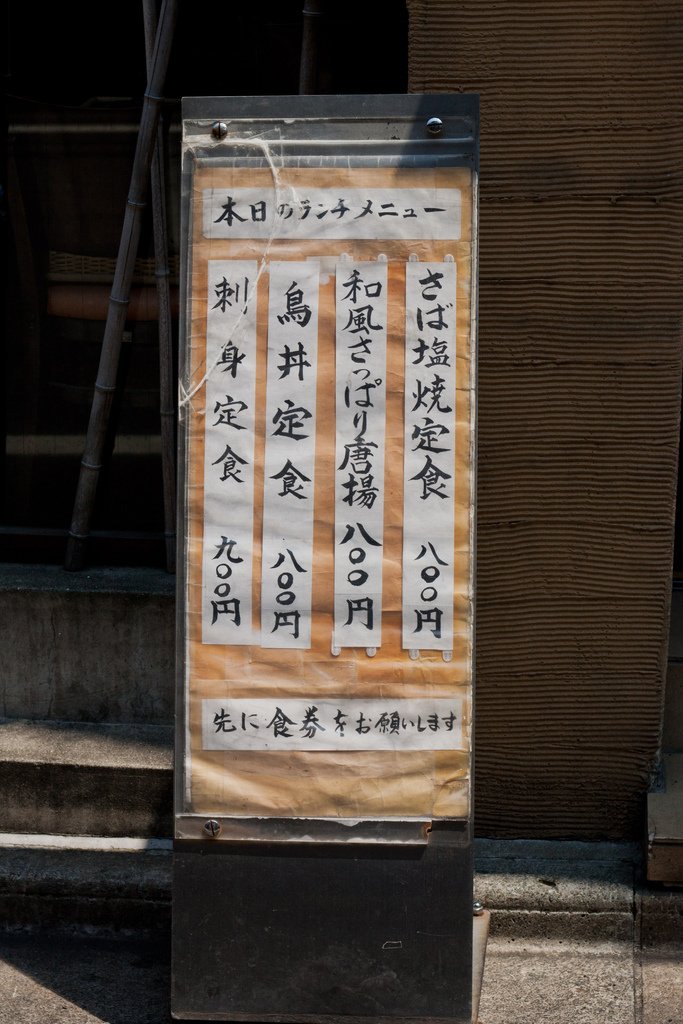 本日のランチメニュー
さば塩焼定食 八〇〇円
和風さっぱり唐揚 八〇〇円
鳥丼定食 八〇〇円
刺身定食 九〇〇円
先に食券をお願いします